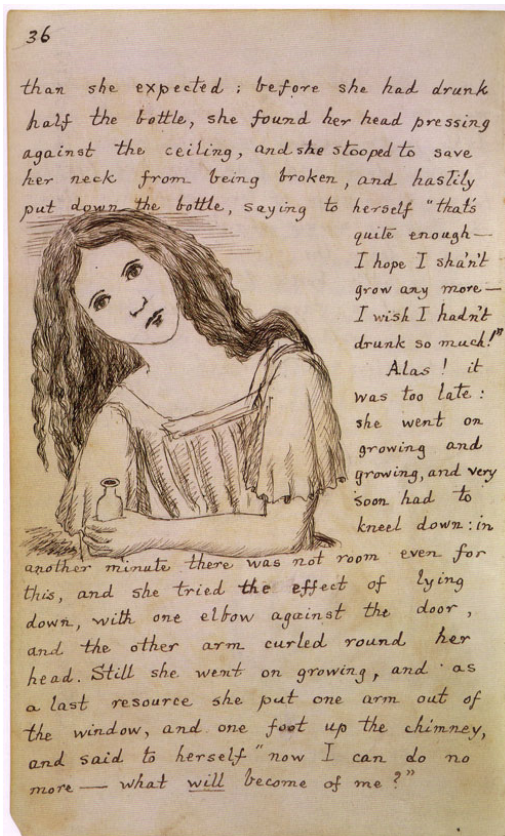 36
than she expected ; before she had drunk
half the bottle, she found her head pressing
against the ceiling, and she stooped to save
her neck from being broken, and hastily
put down the bottle, saying to herself "that's
quite enough —
I hope I sha'n't
grow any more —
I wish I hadn't
drunk so much!"
Alas ! it
was too late :
she went on
growing and
growing, and very
soon had to
kneel down : in
another minute there was not room even for
this, and she tried the effect of lying
down, with one elbow against the door,
and the other arm curled round her
head. Still she went on growing, and as
a last resource she put one arm out of
the window, and one foot up the chimney,
and said to herself "now I can do no
more — what will become of me ?"